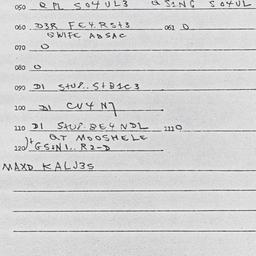 050 Q PL SO4UL3 Q S1NG SO4UL
060 D3R FE4.RST3 061 O
QWIFE ABSAC
070 O
080 O
090 DI STUP.. STB1C3
100 DI CU4 N7
110 DI STUP BE4NDL 1110
QT MOOSHELE
120 GSTN1.. R2-D
MAXD KALJ3S